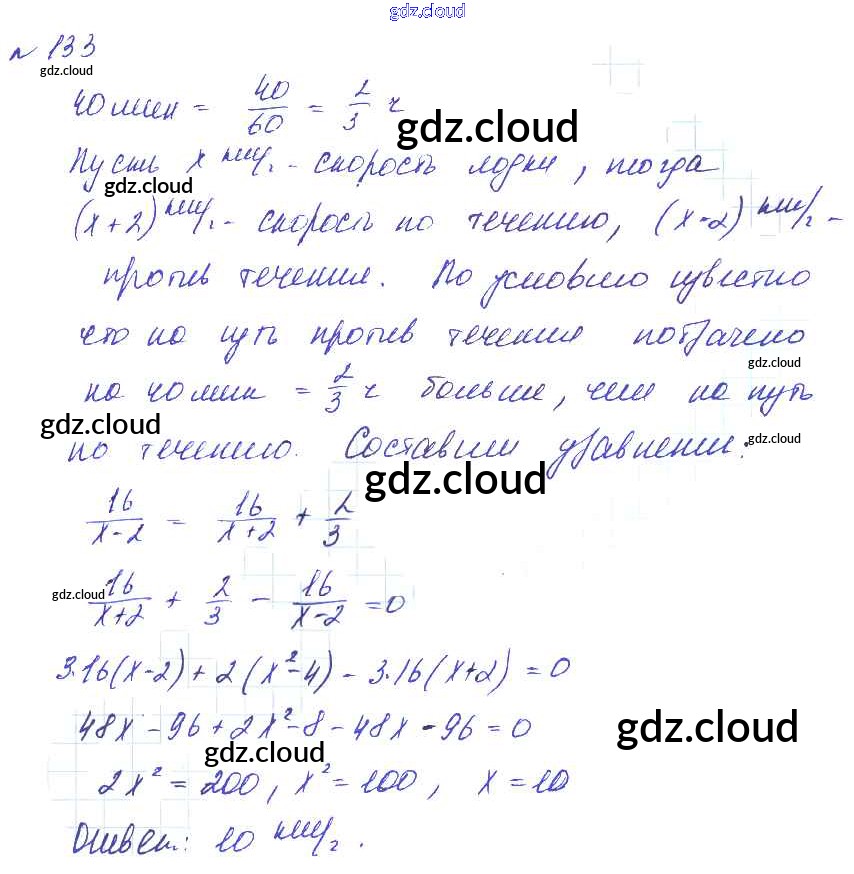 gdz.cloud
№ 133
gdz.cloud
40 мин = 40/60 = 2/3 ч
gdz.cloud
Пусть x км/ч - скорость лодки, тогда
gdz.cloud
(x+2) км/ч - скорость по течению, (x-2) км/ч -
против течения. По условию известно
что на путь против течения потрачено
gdz.cloud
на 40 мин = 2/3 ч больше, чем на путь
gdz.cloud
по течению. Составим уравнение:
gdz.cloud
gdz.cloud
16/(x-2) = 16/(x+2) + 2/3
gdz.cloud
16/(x+2) + 2/3 - 16/(x-2) = 0
3·16(x-2) + 2(x²-4) - 3·16(x+2) = 0
48x - 96 + 2x² - 8 - 48x - 96 = 0
gdz.cloud
gdz.cloud
2x² = 200, x² = 100, x = 10
Ответ: 10 км/ч.